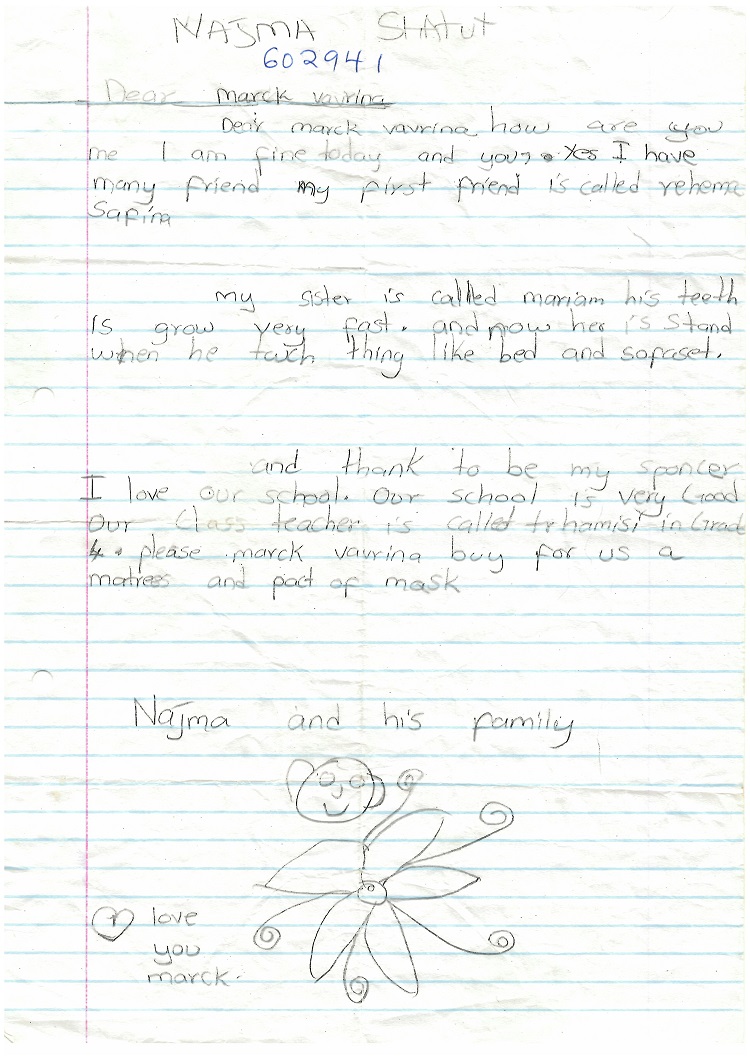 NAJMA SHATUT
602941
Dear marck vavrina
Dear marck vavrina how are you
me I am fine today and you? Yes I have
many friend my first friend is called rehema
Safina
my sister is called mariam his teeth
is grow very fast. and now her is stand
when he tach thing like bed and sofaset.
and thank to be my sponcer
I love our school. Our school is very Good
Our Class teacher is called trhamisi in Grad
4. please marck vavrina buy for us a
matrees and pact of mask
Najma and his family
I love
you
marck.